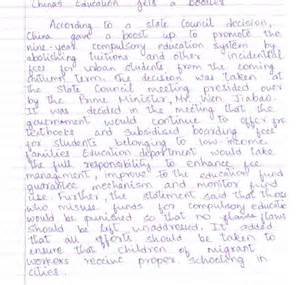 China's Education gets a booster
According to a State Council decision,
China gave a boost up to promote the
nine-year compulsory education system by
abolishing tuitions and other incidental
fees for urban children from the coming
autumn term. The decision was taken at
the State Council meeting presided over
by the Prime Minister, Mr. Wen Jiabao.
It was decided in the meeting that the
government would continue to offer free
textbooks and subsidised boarding fees
for students belonging to low-income
families Education department would take
the full responsibility to enhance fee
management, improve to the education fund
guarantee mechanism and monitor fund
use. Further, the statement said that those
who misuse funds for compulsory education
would be punished so that no flaws
should be left unaddressed. It added
that all efforts should be taken to
ensure that children of migrant
workers receive proper schooling in
cities.